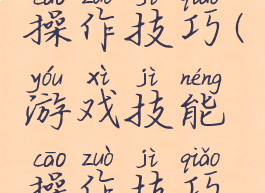 cāo zuò jì qiǎo
操作技巧(
yóu xì jì néng
游戏技能
cāo zuò jì qiǎo
操作技巧